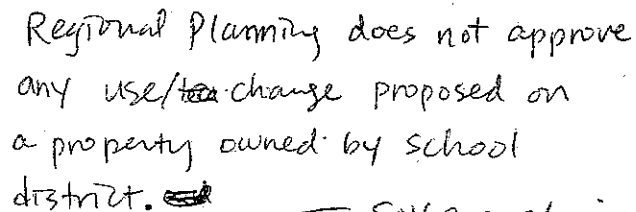 Regional Planning does not approve
any use/change proposed on
a property owned by school
district.